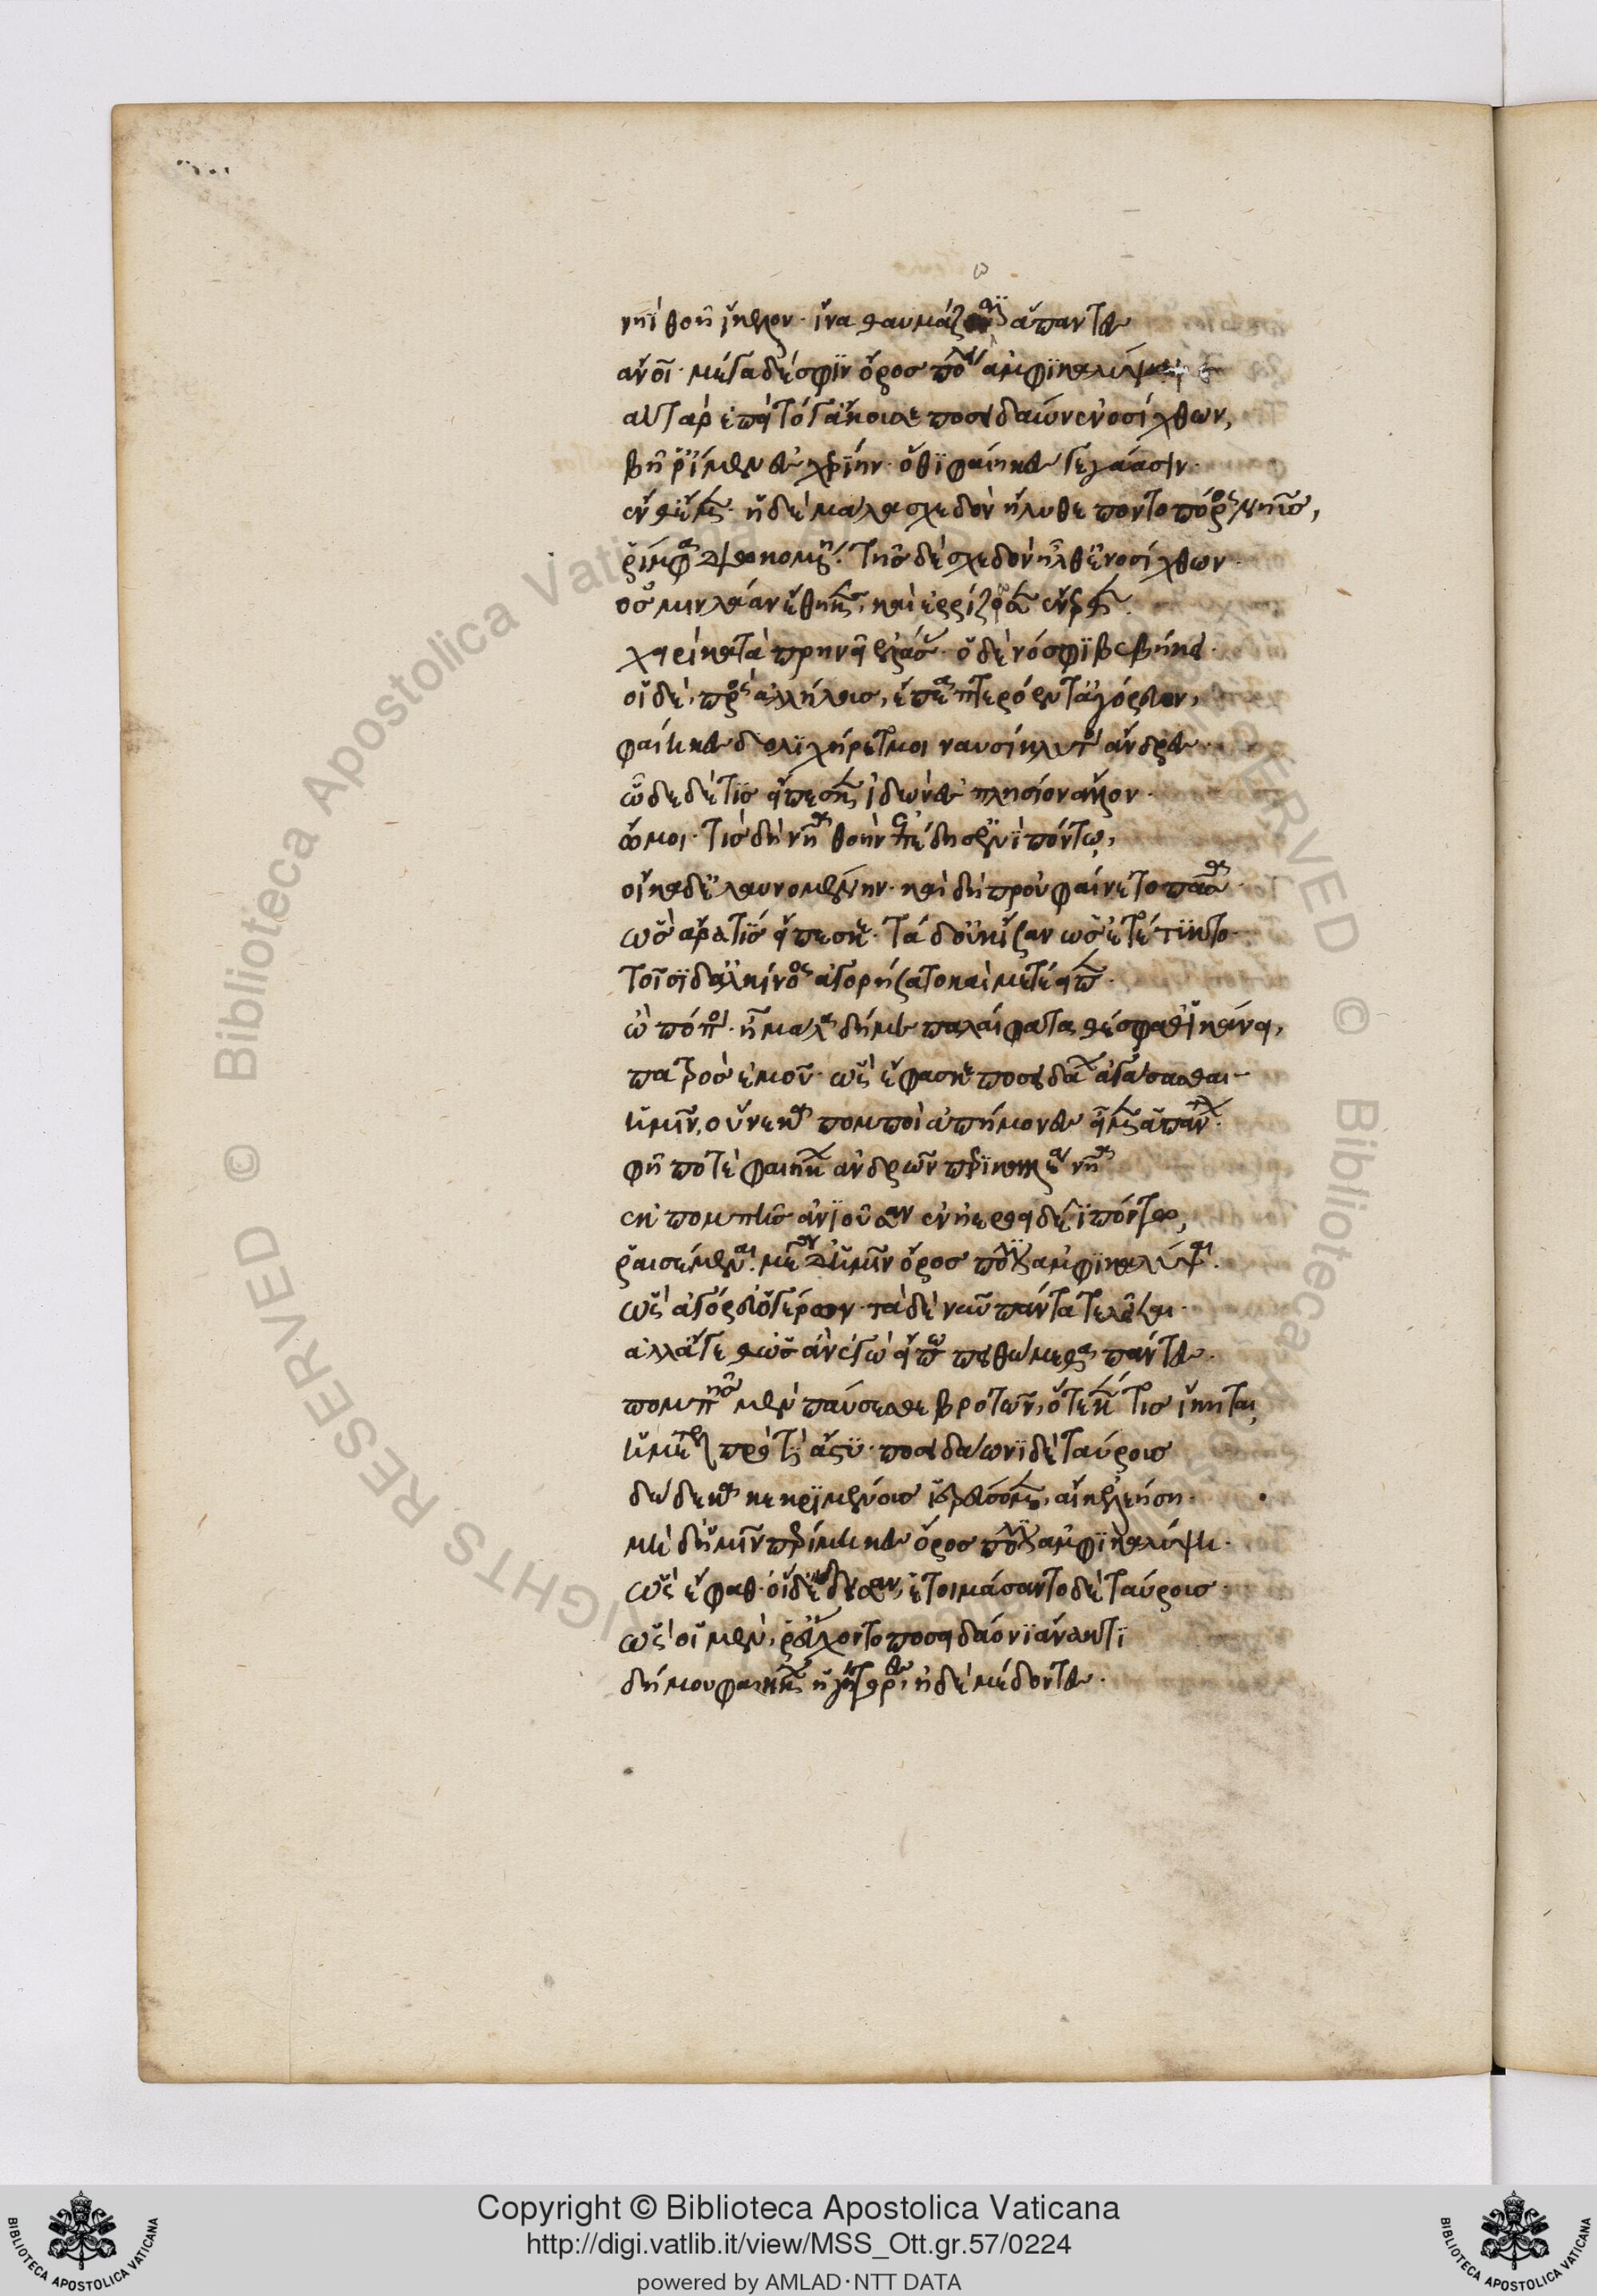 νηῒ θοῆ ἴκελον· ἵνα θαυμάζωσϊν ἅπαντες
αὐτὰρ ἐπεὶ τό γ' ἄκουσε ποσειδάων ἐνοσίχθων,
βῆ ῥ' ἴμεν ἐς σχερίην· ὅθϊ φαίηκες γεγάασιν·
ἔνθ' ἔμεν'· ἡ δὲ μάλα σχεδὸν ἤλυθε ποντοπόρος νηῦς,
ῥίμφα διωκομένη· τῆς δὲ σχεδὸν ἦλθ' ἐνοσίχθων·
ὅς μιν λάαν ἔθηκε, καὶ ἐρρίζωσεν ἔνερθεν·
χειρὶ καταπρηνεῖ ἐλάσας· ὁ δὲ νόσφϊ βεβήκει·
οἱ δὲ, πρὸς ἀλλήλους, ἔπεα πτερόεντ' ἀγόρευον,
φαίηκες δολϊχήρετμοι ναυσίκλυτοι ἄνδρες·
ὧδε δέ τϊς εἴπεσκεν ἰδὼν ἐς πλησίον ἄλλον·
ὤμοι· τίς δὴ νῆα θοὴν ἐπέδησ' ἐνὶ πόντω,
οἴκαδ' ἐλαυνομένην· καὶ δὴ προὐφαίνετο πᾶσα·
ὣς ἄρα τϊς εἴπεσκε· τὰ δ' οὐκ ἴσαν ὡς ἐτέτυκτο·
τοῖσϊ δ' ἀλκίνοος ἀγορήσατο καὶ μετέειπεν·
ὢ πόποι· ἦ μάλα δή με παλαίφατα θέσφαθ' ἱκάνει,
πατρὸς ἐμοῦ· ὣς ἔφασκε ποσειδάων' ἀγάσασθαι
ἡμῖν, οὕνεκα πομποὶ ἀπήμονές εἰμεν ἁπάντων·
φῆ ποτὲ φαιήκων ἀνδρῶν περϊκαλλέα νῆα
ἐκ πομπῆς ἀνϊοῦσαν ἐν ἠεροειδέϊ πόντω,
ῥαισέμεναι· μέγα δ' ἡμῖν ὄρος πόλει ἀμφϊκαλύψαι·
ὣς ἀγόρευ' ὁ γέρων· τὰ δὲ νῦν πάντα τελεῖται·
ἀλλ' ἄγεθ' ὡς ἂν ἐγὼ εἴπω πειθώμεθα πάντες·
πομπῆς μὲν παύσεσθε βροτῶν, ὅτε κέν τις ἵκηται
ἡμέτερον προτὶ ἄστυ· ποσειδάωνϊ δὲ ταύρους
δώδεκα κεκρϊμένους ἱερεύσομεν, αἴ κ' ἐλεήση·
μηδ' ἡμῖν περίμηκες ὄρος πόλει ἀμφϊκαλύψη·
ὣς ἔφαθ'· οἱ δ' ἔδδεισαν, ἑτοιμάσαντο δὲ ταύρους
ὣς οἱ μὲν, ῥ' εὔχοντο ποσειδάονϊ ἄνακτϊ
δήμου φαιήκων ἡγήτορες, ἠδὲ μέδοντες·
Copyright © Biblioteca Apostolica Vaticana
http://digi.vatlib.it/view/MSS_Ott.gr.57/0224
powered by AMLAD·NTT DATA